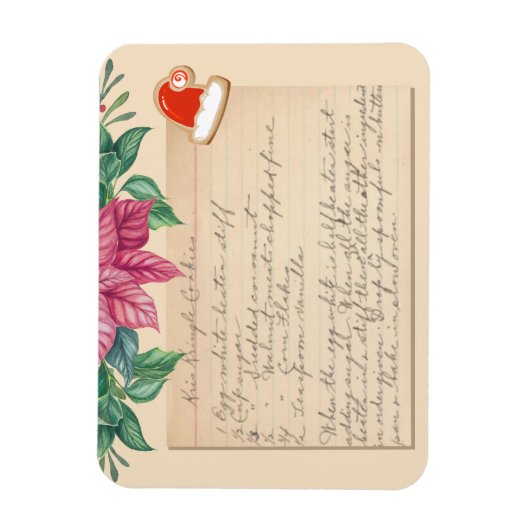 Kris Kringle Cookies
1 Egg white beaten stiff
½ Cup sugar
½ " Shredded cocoanut
½ " Walnut meat chopped fine
¾ " Corn Flakes
½ Teaspoon Vanilla
When the egg white is half beaten start
adding sugar. When all the sugar is
beath in & stiff then add the other ingredient
in order given. Drop by spoonfuls on butter
pan & bake in slow oven